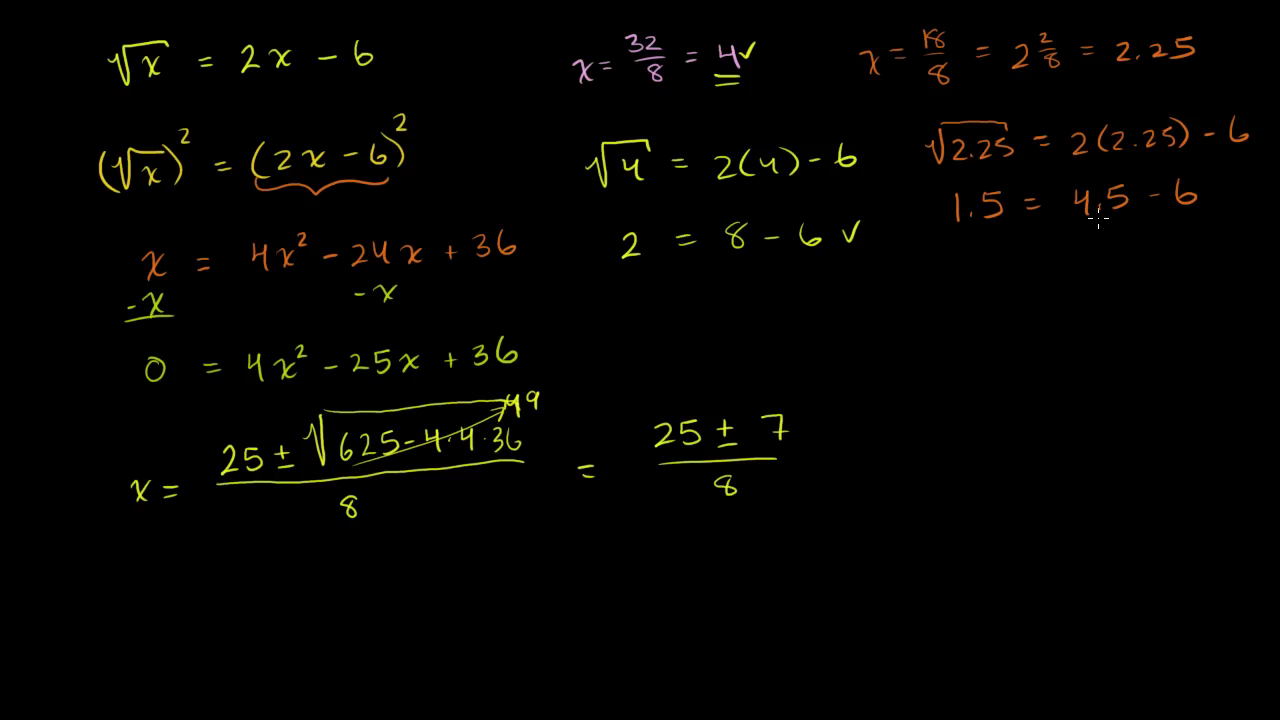 √x = 2x - 6
(√x)² = (2x - 6)²
x = 4x² - 24x + 36
-x - x
0 = 4x² - 25x + 36
x = (25 ± √(625 - 4·4·36))/8 = (25 ± 7)/8
49
x = 32/8 = 4 ✓
√4 = 2(4) - 6
2 = 8 - 6 ✓
x = 18/8 = 2 2/8 = 2.25
√2.25 = 2(2.25) - 6
1.5 = 4.5 - 6